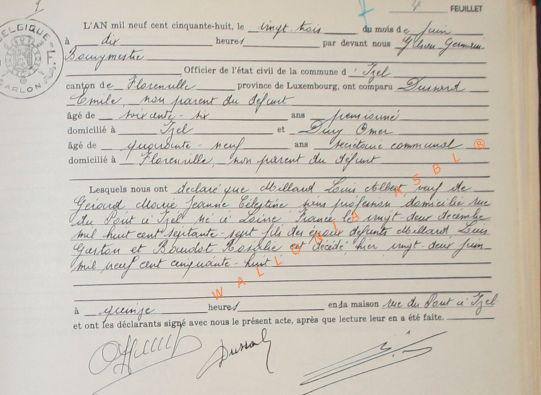 9 4 FEUILLET
L'AN mil neuf cent cinquante-huit, le vingt trois du mois de juin
à dix heures par devant nous
Bourgmestre
Officier de l'état civil de la commune d' Izel
canton de Florenville province de Luxembourg, ont comparu Dussard
Emile, non parent du défunt
âgé de soixante-six ans pensionné
domicilié à Izel et Omer
âgé de quarante-neuf ans secrétaire communal
domicilié à Florenville, non parent du défunt
Lesquels nous ont déclaré que Millard Louis Albert veuf de
Gérard Marie Jeanne Célestine sans profession domicilié rue
du Pont à Izel né à Loire, France le vingt deux décembre
mil huit cent septante-sept fils des époux défunts Millard Louis
Gaston et Baudot Rosalie est décédé hier vingt-deux juin
mil neuf cent cinquante-huit
à quinze heures en da maison rue du Pont à Izel
et ont les déclarants signé avec nous le présent acte, après que lecture leur en a été faite.
BELGIQUE
ARLON
WALLONIA ASBL ®